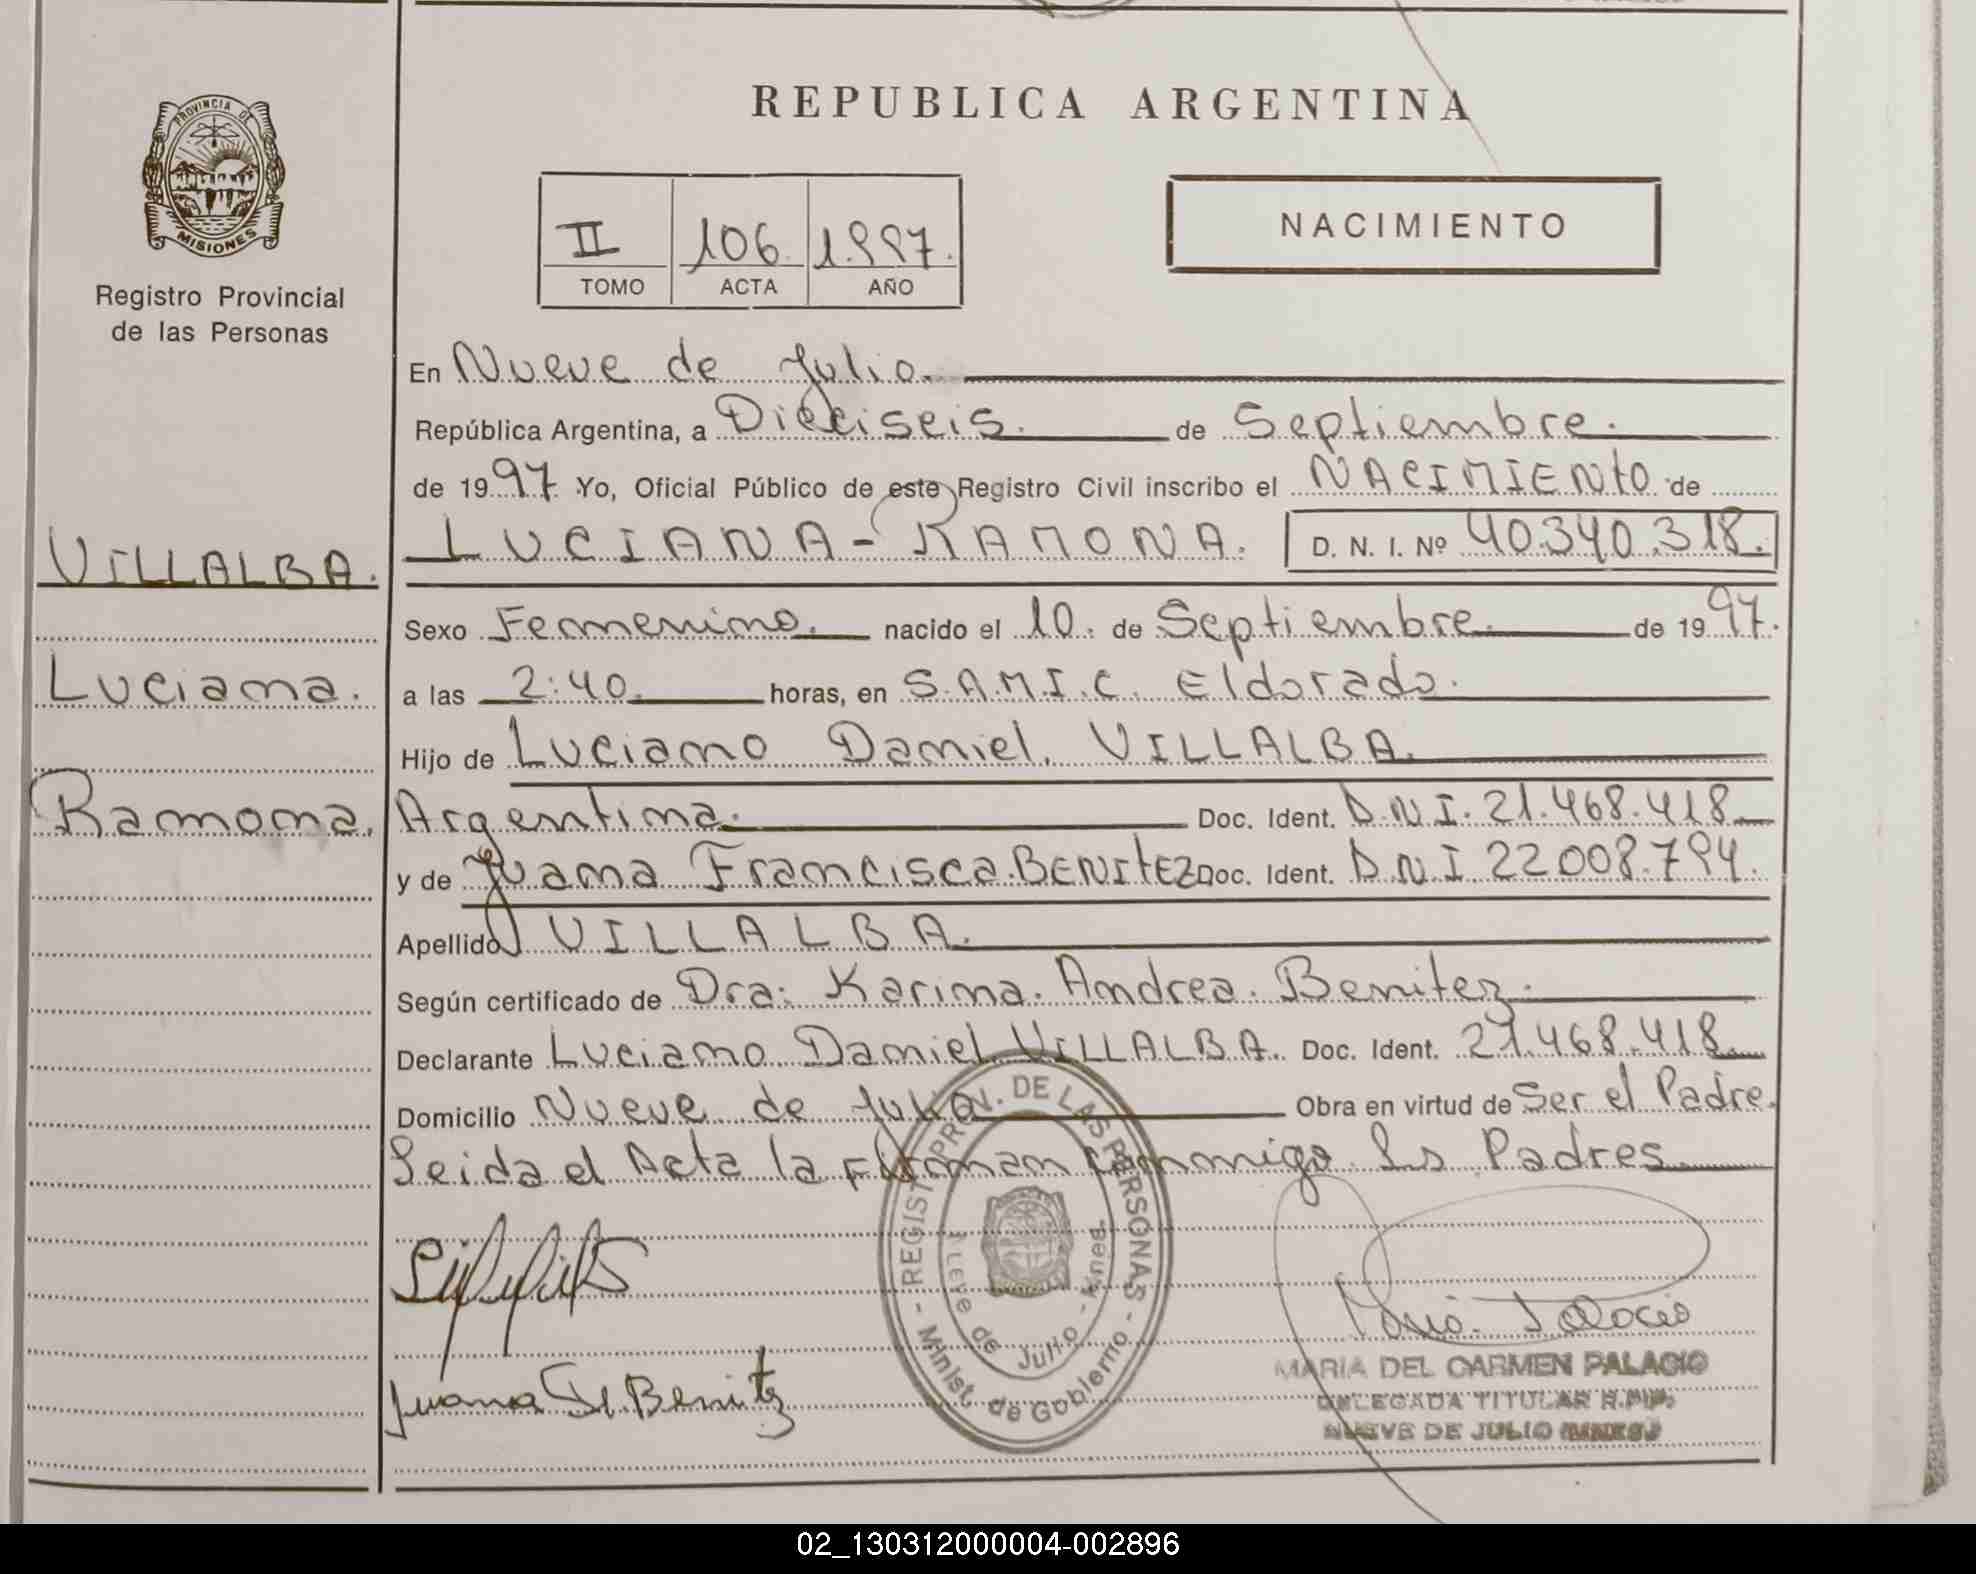 REPUBLICA ARGENTINA
PROVINCIA DE MISIONES
Registro Provincial
de las Personas
II 106 1.997.
TOMO ACTA AÑO
NACIMIENTO
En Nueve de Julio.
República Argentina, a Dieciseis. de Septiembre.
de 1997. Yo, Oficial Público de este Registro Civil inscribo el NACIMIENTO de
VILLALBA.
Luciana.
Ramona.
LUCIANA - RAMONA. D. N. I. Nº 40.340.318.
Sexo Femenino. nacido el 10. de Septiembre. de 1997.
a las 2:40. horas, en S.A.M.I.C. Eldorado.
Hijo de Luciano Daniel. VILLALBA.
Argentina. Doc. Ident. D.N.I. 21.468.418
y de Juana Francisca. BENITEZ Doc. Ident. D.N.I 22.008.794.
Apellido VILLALBA.
Según certificado de Dra: Karina. Andrea. Benitez.
Declarante Luciano Daniel VILLALBA. Doc. Ident. 21.468.418.
Domicilio Nueve de Julio Obra en virtud de Ser el Padre.
Leida el Acta la Firman conmigo los Padres
Juana F. Benitez
REGIST. PROV. DE LAS PERSONAS - Minist. de Gobierno -
de Julio - Mnes.
MARIA DEL CARMEN PALACIO
DELEGADA TITULAR R.P.P.
NUEVE DE JULIO (MNES.)
02_130312000004-002896